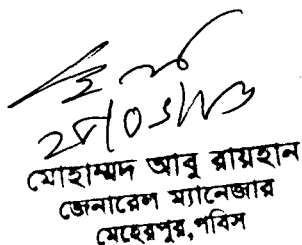 মোহাম্মদ আবু রায়হান
জেনারেল ম্যানেজার
মেহেরপুর, পবিস